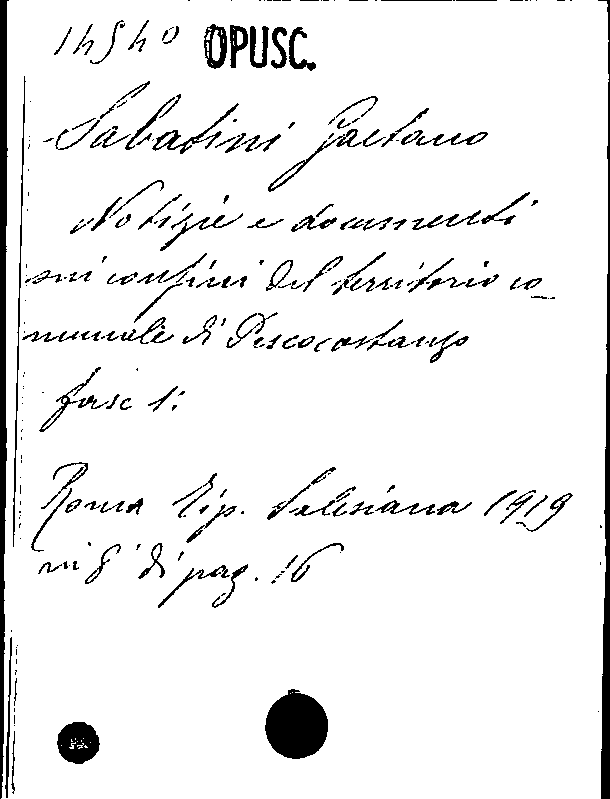 14540 OPUSC.
Sabatini Gaetano
Notizie e documenti
sui confini del territorio co-
munale di Pescocostanzo
fasc 1:
Roma Tip. Salesiana 1919
in 8° di pag. 16